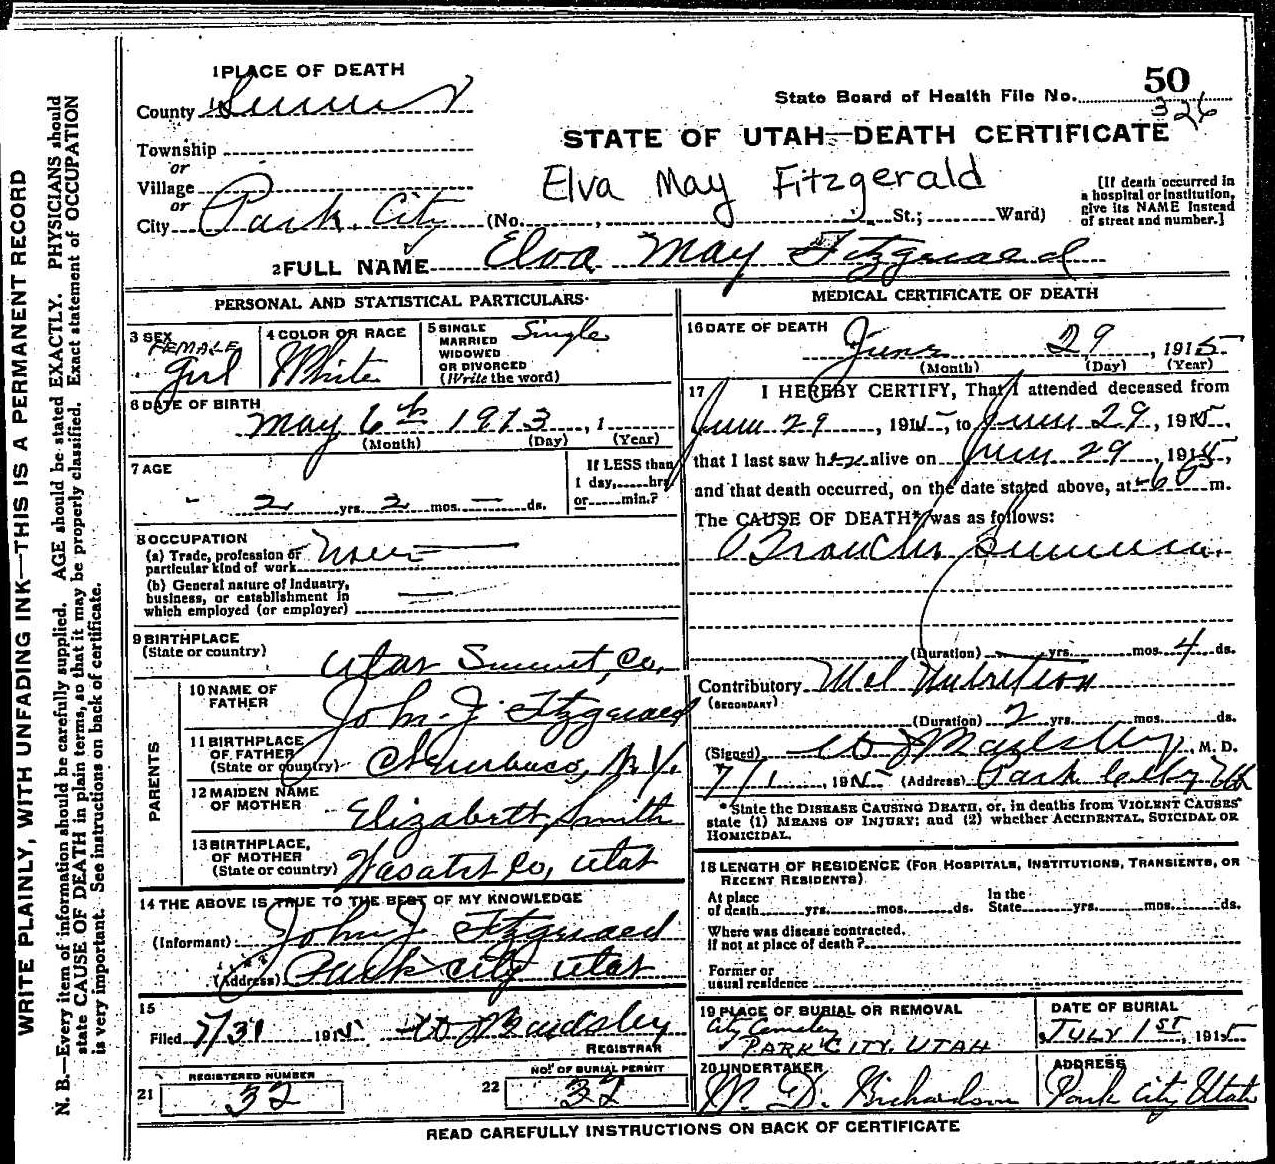 WRITE PLAINLY, WITH UNFADING INK—THIS IS A PERMANENT RECORD
N. B.—Every item of information should be carefully supplied. AGE should be stated EXACTLY. PHYSICIANS should
state CAUSE OF DEATH in plain terms, so that it may be properly classified. Exact statement of OCCUPATION
is very important. See instructions on back of certificate.
1 PLACE OF DEATH
County Summit
Township
or
Village
or
City Park City
50
State Board of Health File No. 326
STATE OF UTAH—DEATH CERTIFICATE
Elva May Fitzgerald
(No. , St.; Ward)
[If death occurred in
a hospital or institution,
give its NAME instead
of street and number.]
2 FULL NAME Elva May Fitzgerald
PERSONAL AND STATISTICAL PARTICULARS
3 SEX
FEMALE
Girl
4 COLOR OR RACE
White
5 SINGLE
MARRIED
WIDOWED
OR DIVORCED
(Write the word)
Single
6 DATE OF BIRTH
May 6th 1913, 1
(Month) (Day) (Year)
7 AGE
2 yrs. 2 mos. — ds.
If LESS than
1 day, hrs
or min.?
8 OCCUPATION
(a) Trade, profession or
particular kind of work None
(b) General nature of Industry,
business, or establishment in
which employed (or employer)
9 BIRTHPLACE
(State or country)
Utah Summit, Co.
PARENTS
10 NAME OF
FATHER
John J Fitzgerald
11 BIRTHPLACE
OF FATHER
(State or country) Churubusco, N.Y.
12 MAIDEN NAME
OF MOTHER
Elizabeth Smith
13 BIRTHPLACE,
OF MOTHER
(State or country) Wasatch Co, Utah
14 THE ABOVE IS TRUE TO THE BEST OF MY KNOWLEDGE
(Informant) John J. Fitzgerald
(Address) Park City Utah
15
Filed 7/31 1915 W J Bardsley
REGISTRAR
21
REGISTERED NUMBER
32
22
NO. OF BURIAL PERMIT
32
MEDICAL CERTIFICATE OF DEATH
16 DATE OF DEATH
June 29, 1915
(Month) (Day) (Year)
17 I HEREBY CERTIFY, That I attended deceased from
June 29, 1915, to June 29, 1915,
that I last saw her alive on June 29, 1915,
and that death occurred, on the date stated above, at m.
The CAUSE OF DEATH* was as follows:
Broncho Pneumonia
(Duration) yrs. mos. 4 ds.
Contributory Mal Nutrition
(SECONDARY)
(Duration) 2 yrs. mos. ds.
(Signed) W J Bardsley, M. D.
7/1, 1915 (Address) Park City Utah
*State the DISEASE CAUSING DEATH, or, in deaths from VIOLENT CAUSES
state (1) MEANS OF INJURY; and (2) whether ACCIDENTAL, SUICIDAL OR
HOMICIDAL.
18 LENGTH OF RESIDENCE (FOR HOSPITALS, INSTITUTIONS, TRANSIENTS, OR
RECENT RESIDENTS)
At place
of death yrs. mos. ds.
In the
State yrs. mos. ds.
Where was disease contracted,
if not at place of death?
Former or
usual residence
19 PLACE OF BURIAL OR REMOVAL
City Cemetery
PARK CITY, UTAH
DATE OF BURIAL
JULY 1ST, 1915
20 UNDERTAKER
W. D. Richardson
ADDRESS
Park City Utah
READ CAREFULLY INSTRUCTIONS ON BACK OF CERTIFICATE